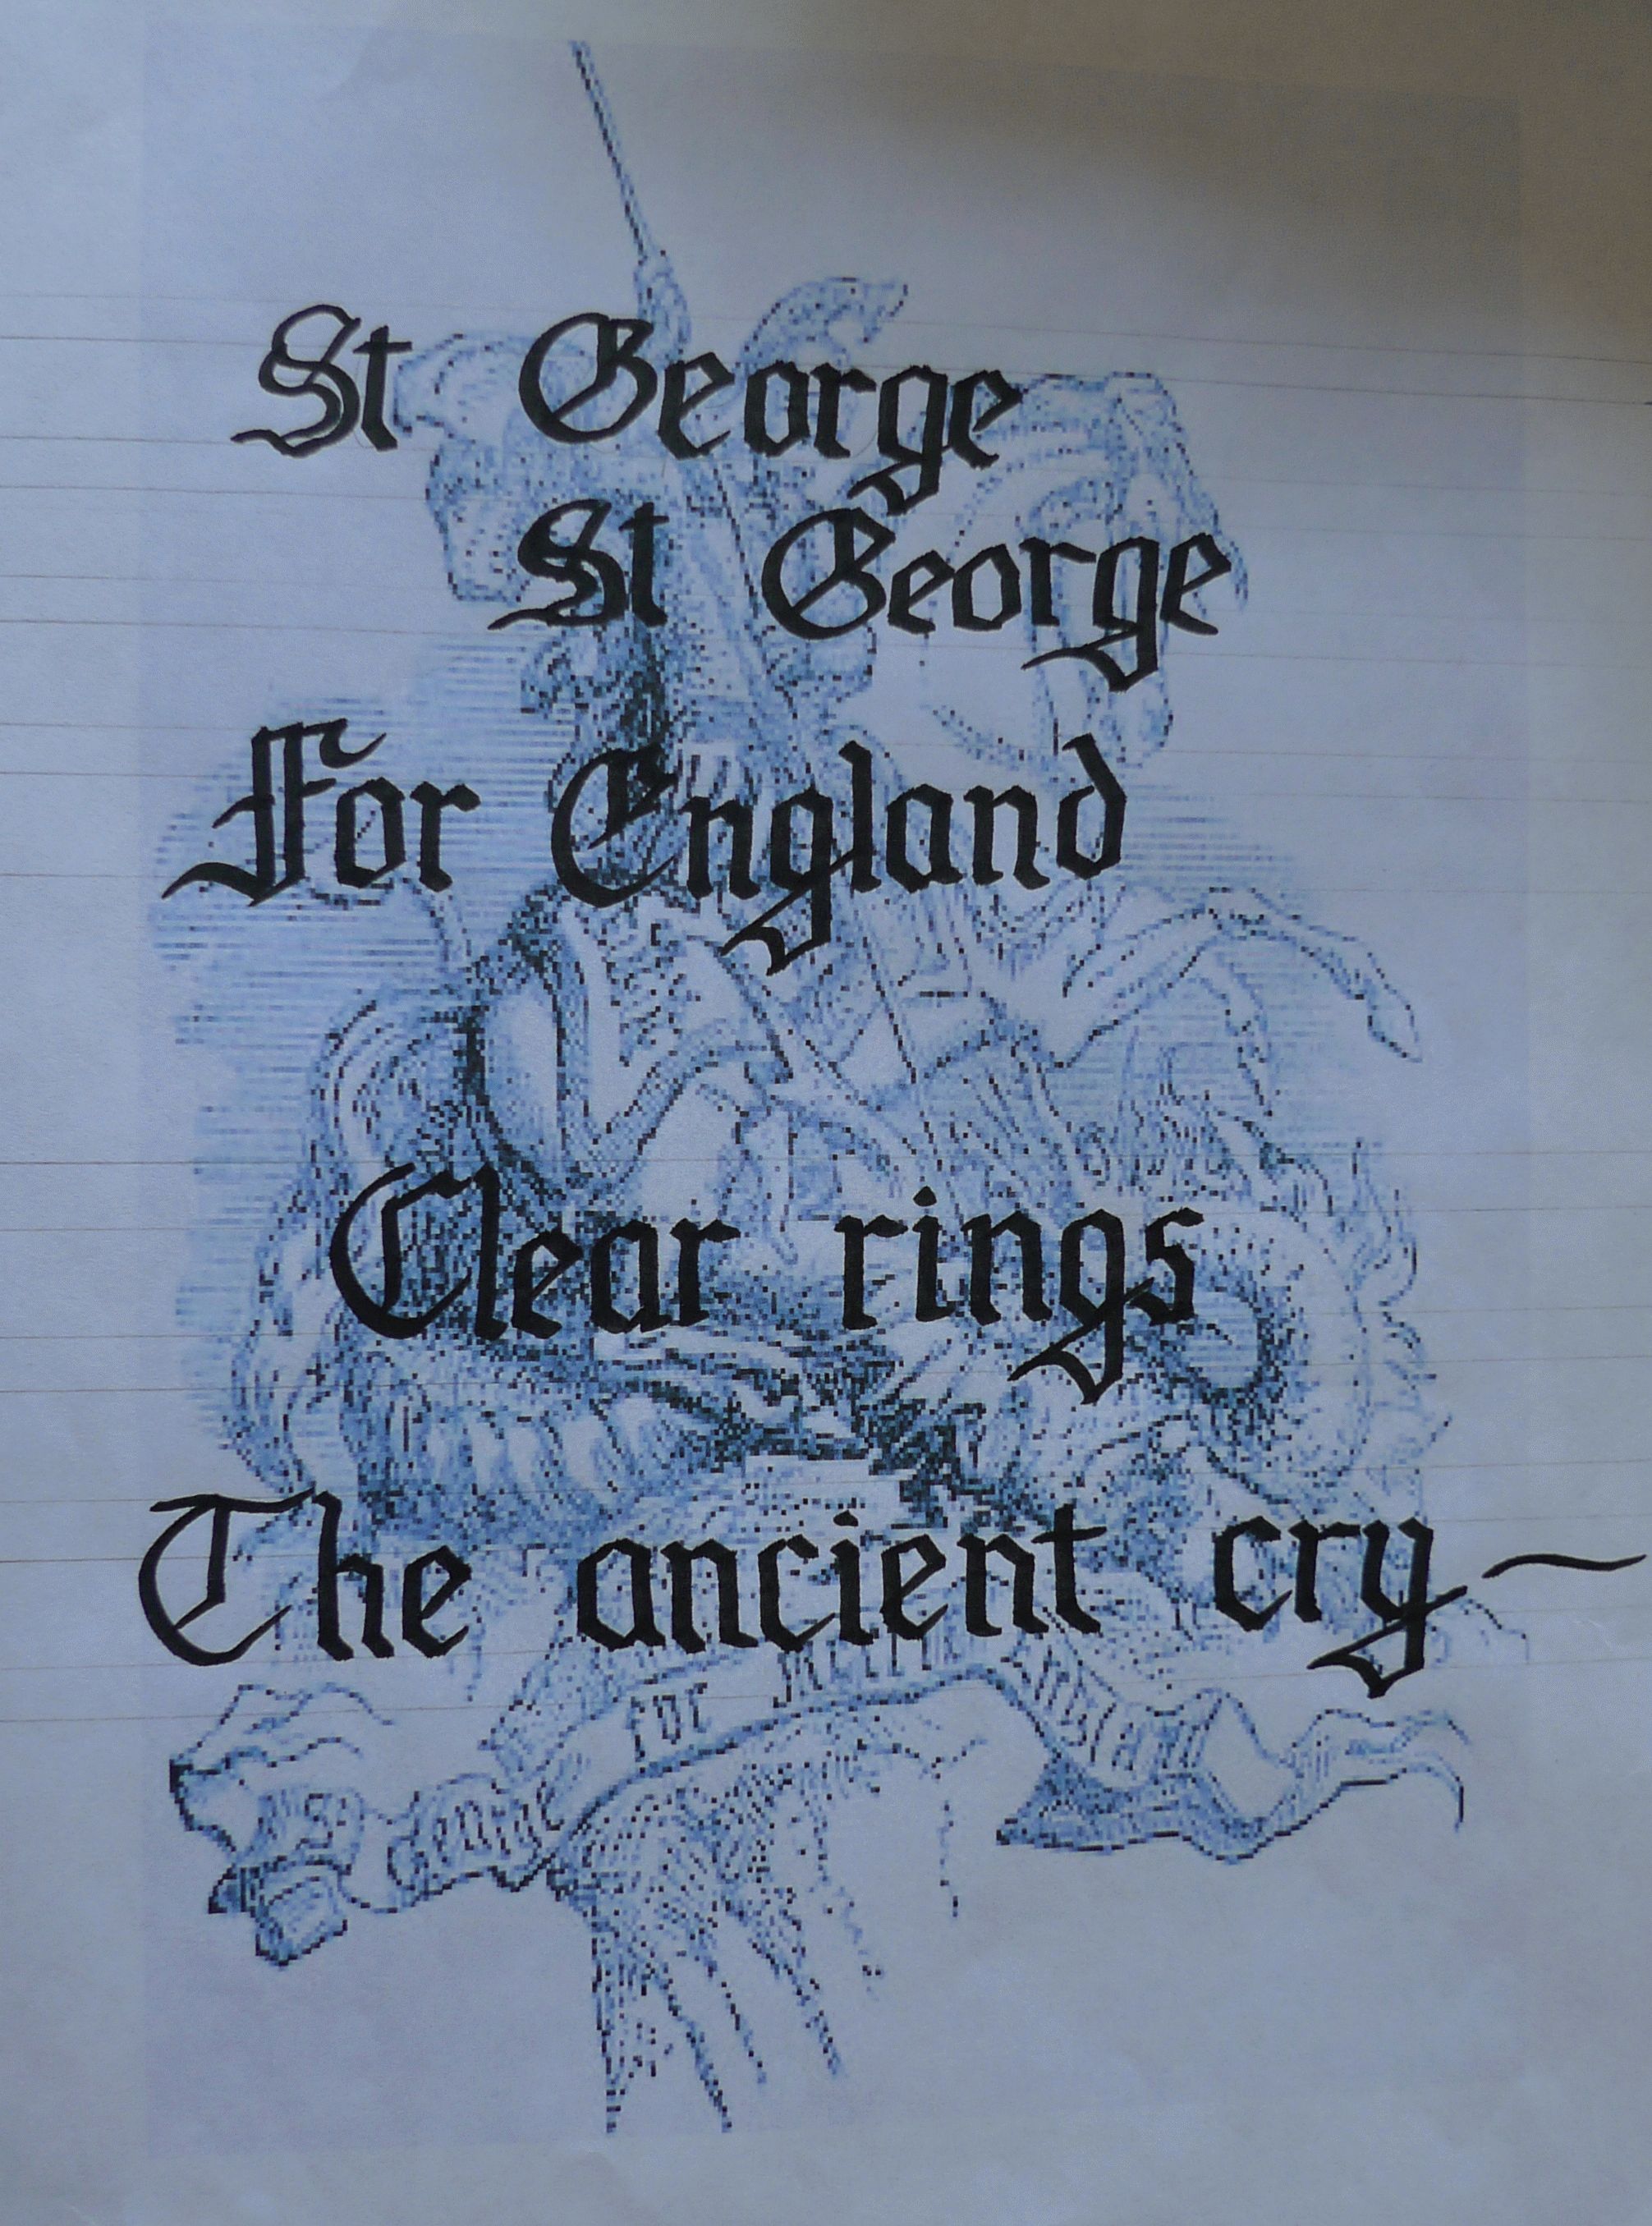 St George
St George
For England
Clear rings
The ancient cry~
St
George
for Merrie
England